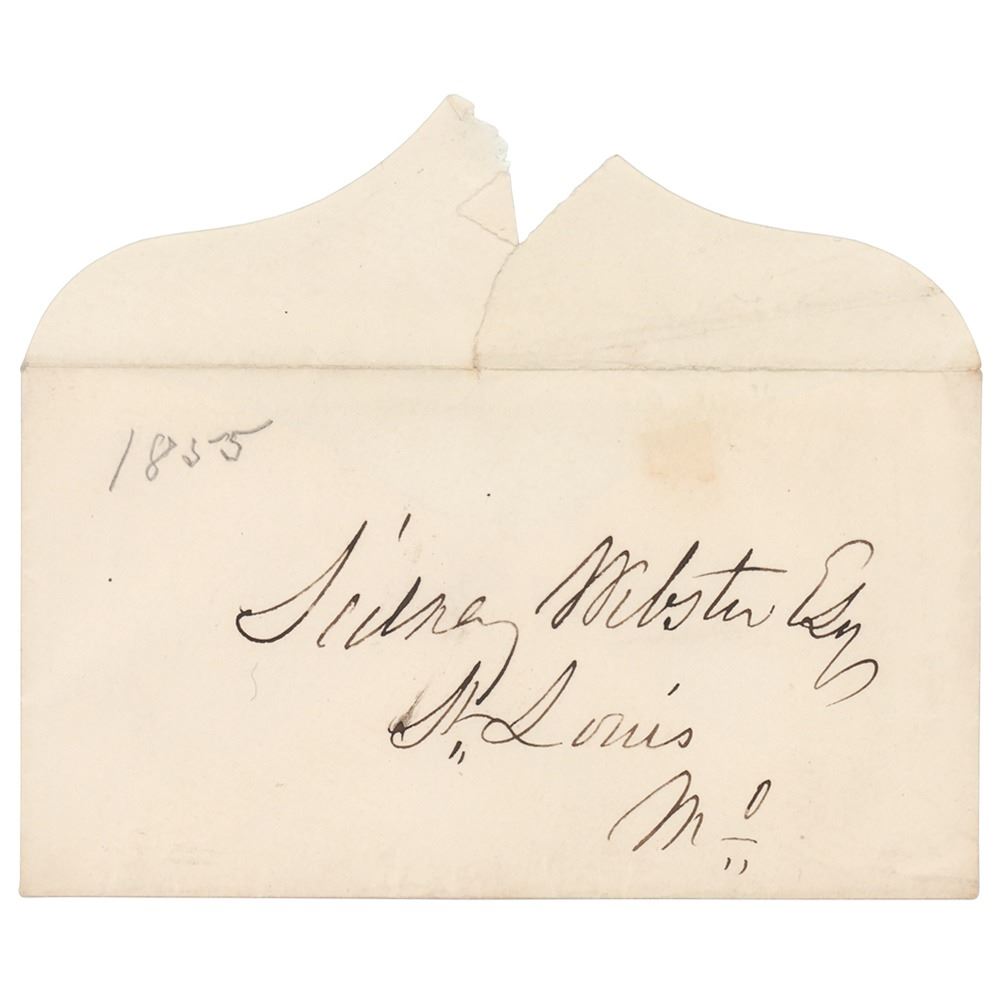 1855
Sidney Webster Esq
St. Louis
Mo